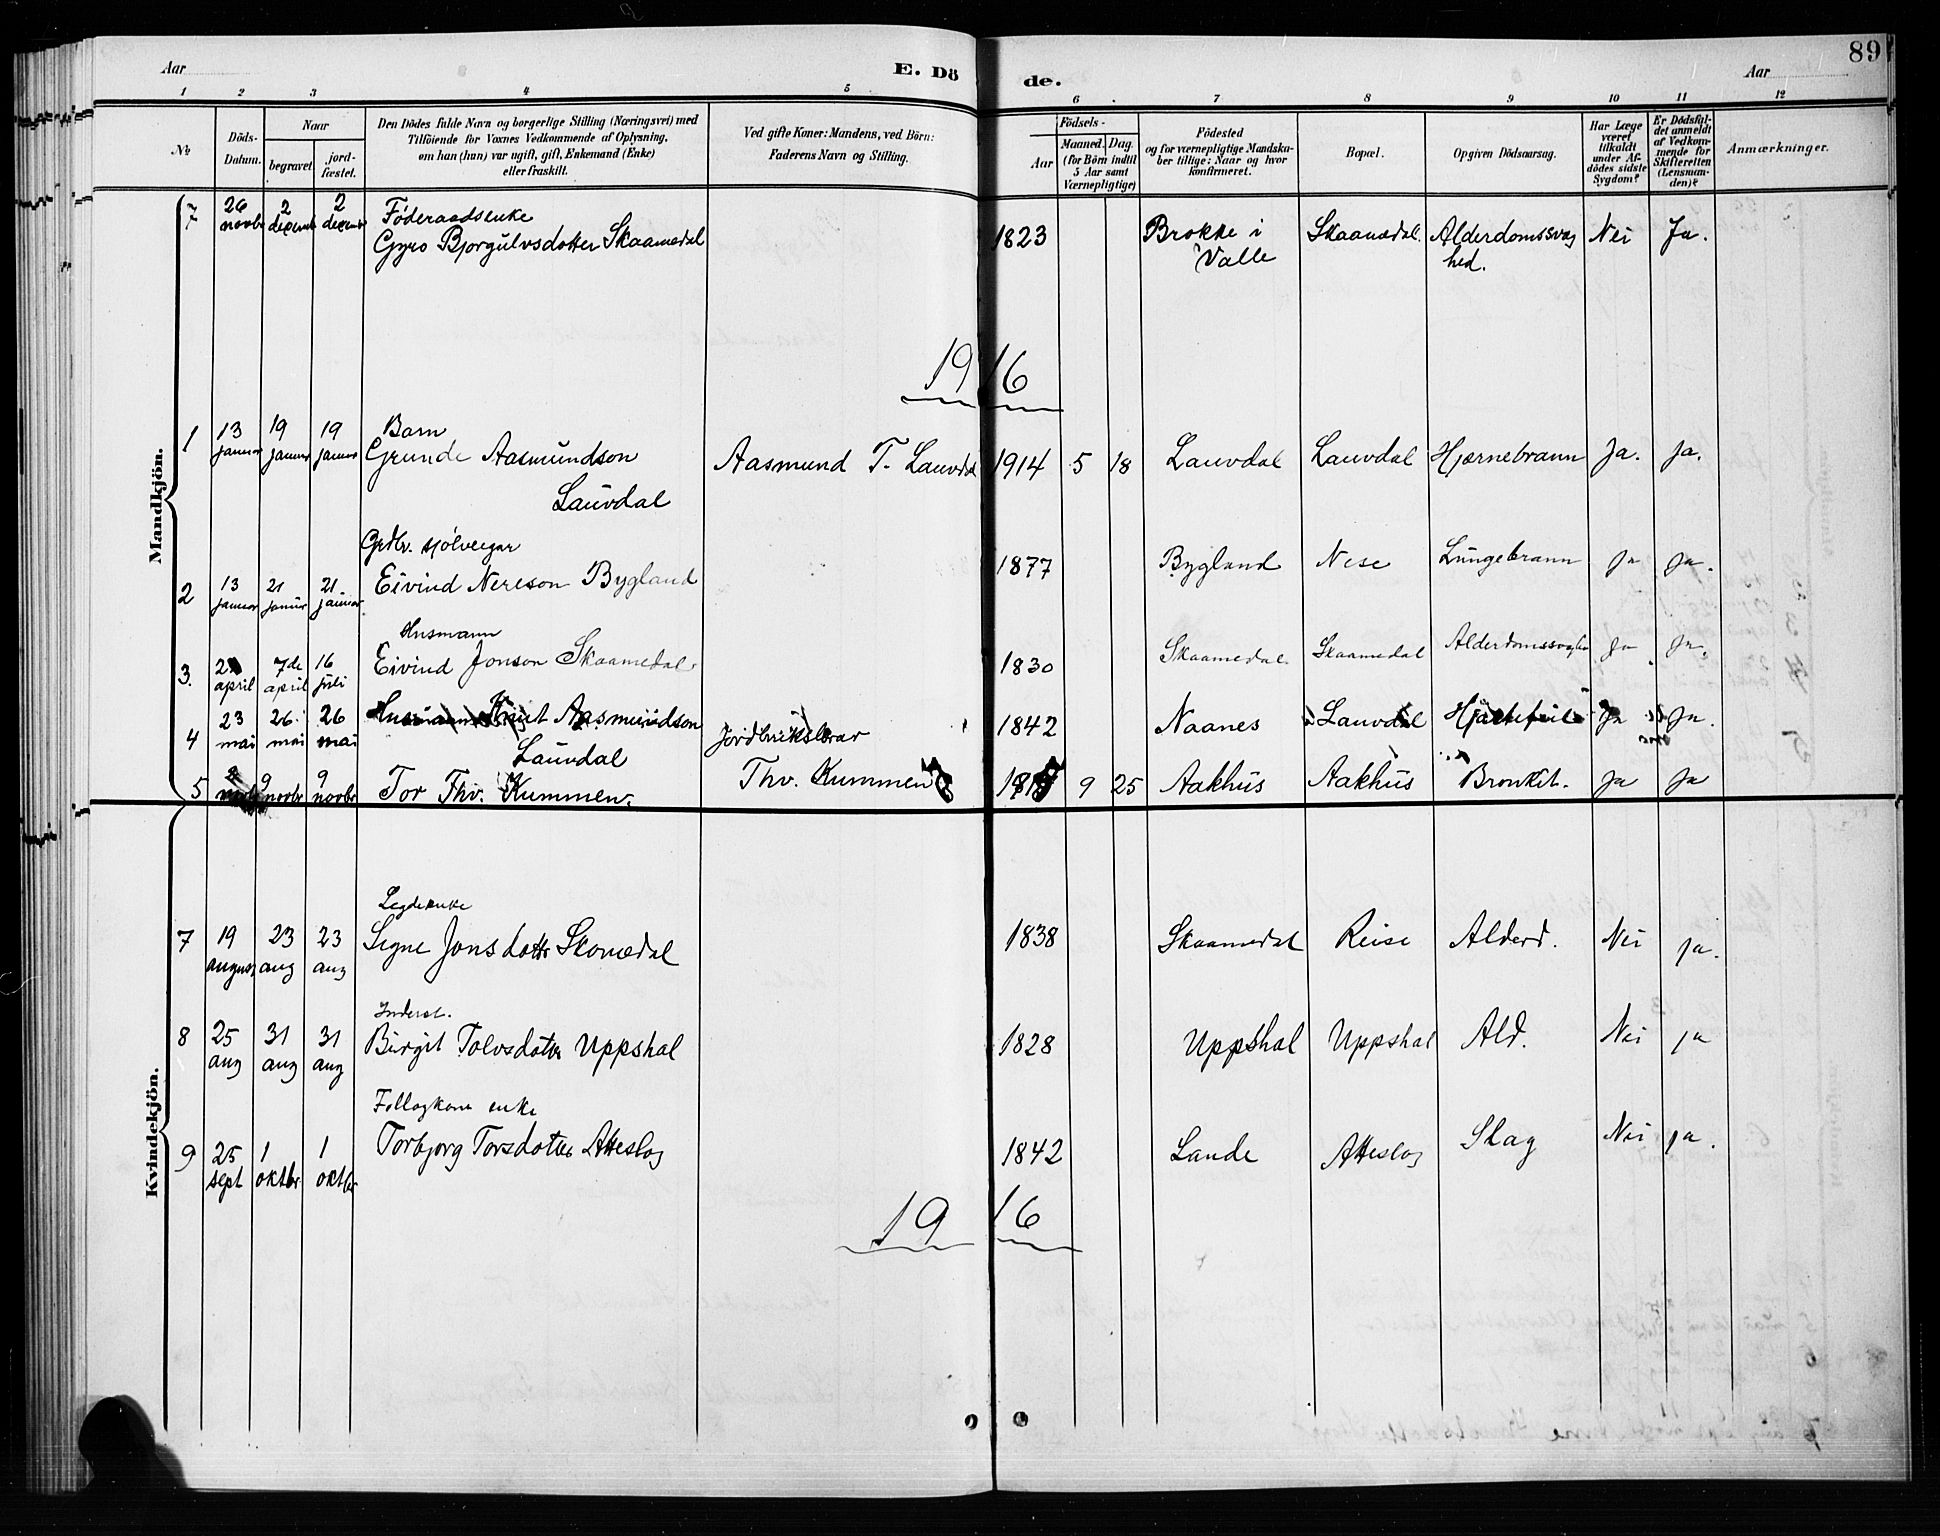 89
Aar
E. Dö
de.
Aar
1 2 3 4 5 6 7 8 9 10 11 12
No
Döds-Datum.
Naar
begravet.
jord-fæstet.
Den Dödes fulde Navn og borgerlige Stilling (Næringsvei) med
Tilföiende för Voxnes Vedkommende af Oplysning,
om han (hun) var ugift, gift, Enkemand (Enke)
eller fraskilt.
Ved gifte Koner: Mandens, ved Börn:
Faderens Navn og Stilling.
Födsels-
Aar
Maaned. Dag.
(for Börn indtil
5 Aar samt
Værnepligtige)
Födested
og for værnepligtige Mandska-
ber tillige: Naar og hvor
konfirmeret.
Bopæl.
Opgiven Dödsaarsag.
Har Læge
været
tilkaldt
under Af-
dödes sidste
Sygdom?
Er Dödsfal-
det anmeldt
af Vedkom-
mende for
Skifteretten
(Lensman-
den)?
Anmærkninger.
Mandkjön.
7 26 novbr 2 decemb 2 decemb Föderaadsenke
Gyro Bjorgulvsdotter Skaamedal 1823 Brokke i Skaamedal. Alderdomssvag Nei Ja.
Valle hed.
1916
1 13 januar 19 januar 19 januar Barn
Grunde Aasmundson Aasmund T. Lauvdal 1914 5 18 Lauvdal Lauvdal Hjærnebrann Ja. Ja.
Lauvdal
Grdbr. sjölveigar
2 13 januar 21 januar 21 januar Eivind Nereson Bygland 1877 Bygland Nese Lungebrann Ja Ja.
Husmann
3. april 7de april 16 juli Eivind Jonson Skaamedal. 1830 Skaamedal. Skaamedal Ja Ja.
4 23 mai 26 mai 26 mai Knut Aasmundson 1842 Naanes Lauvdal Ja Ja.
Lauvdal Jordbruks
5 9 novbr 9 novbr Tor Thv. Kummen. Thv. Kummen 9 25 Aakhus Aakhus Bronkit. Ja Ja
Kvindekjön.
Legdeenke
7 19 august 23 aug 23 aug Signe Jonsdotter Skomedal 1838 Skaamedal Reise Alderd. Nei ja.
Inderst.
8 25 aug 31 aug 31 aug Birgit Tolvsdotter Uppshal 1828 Uppshal Uppshal Ald. Nei ja
enke
9 25 sept 1 oktbr 1 oktbr Torbjorg Torsdotter Atteslog 1842 Lande Atteslog Slag Nei ja.
1916